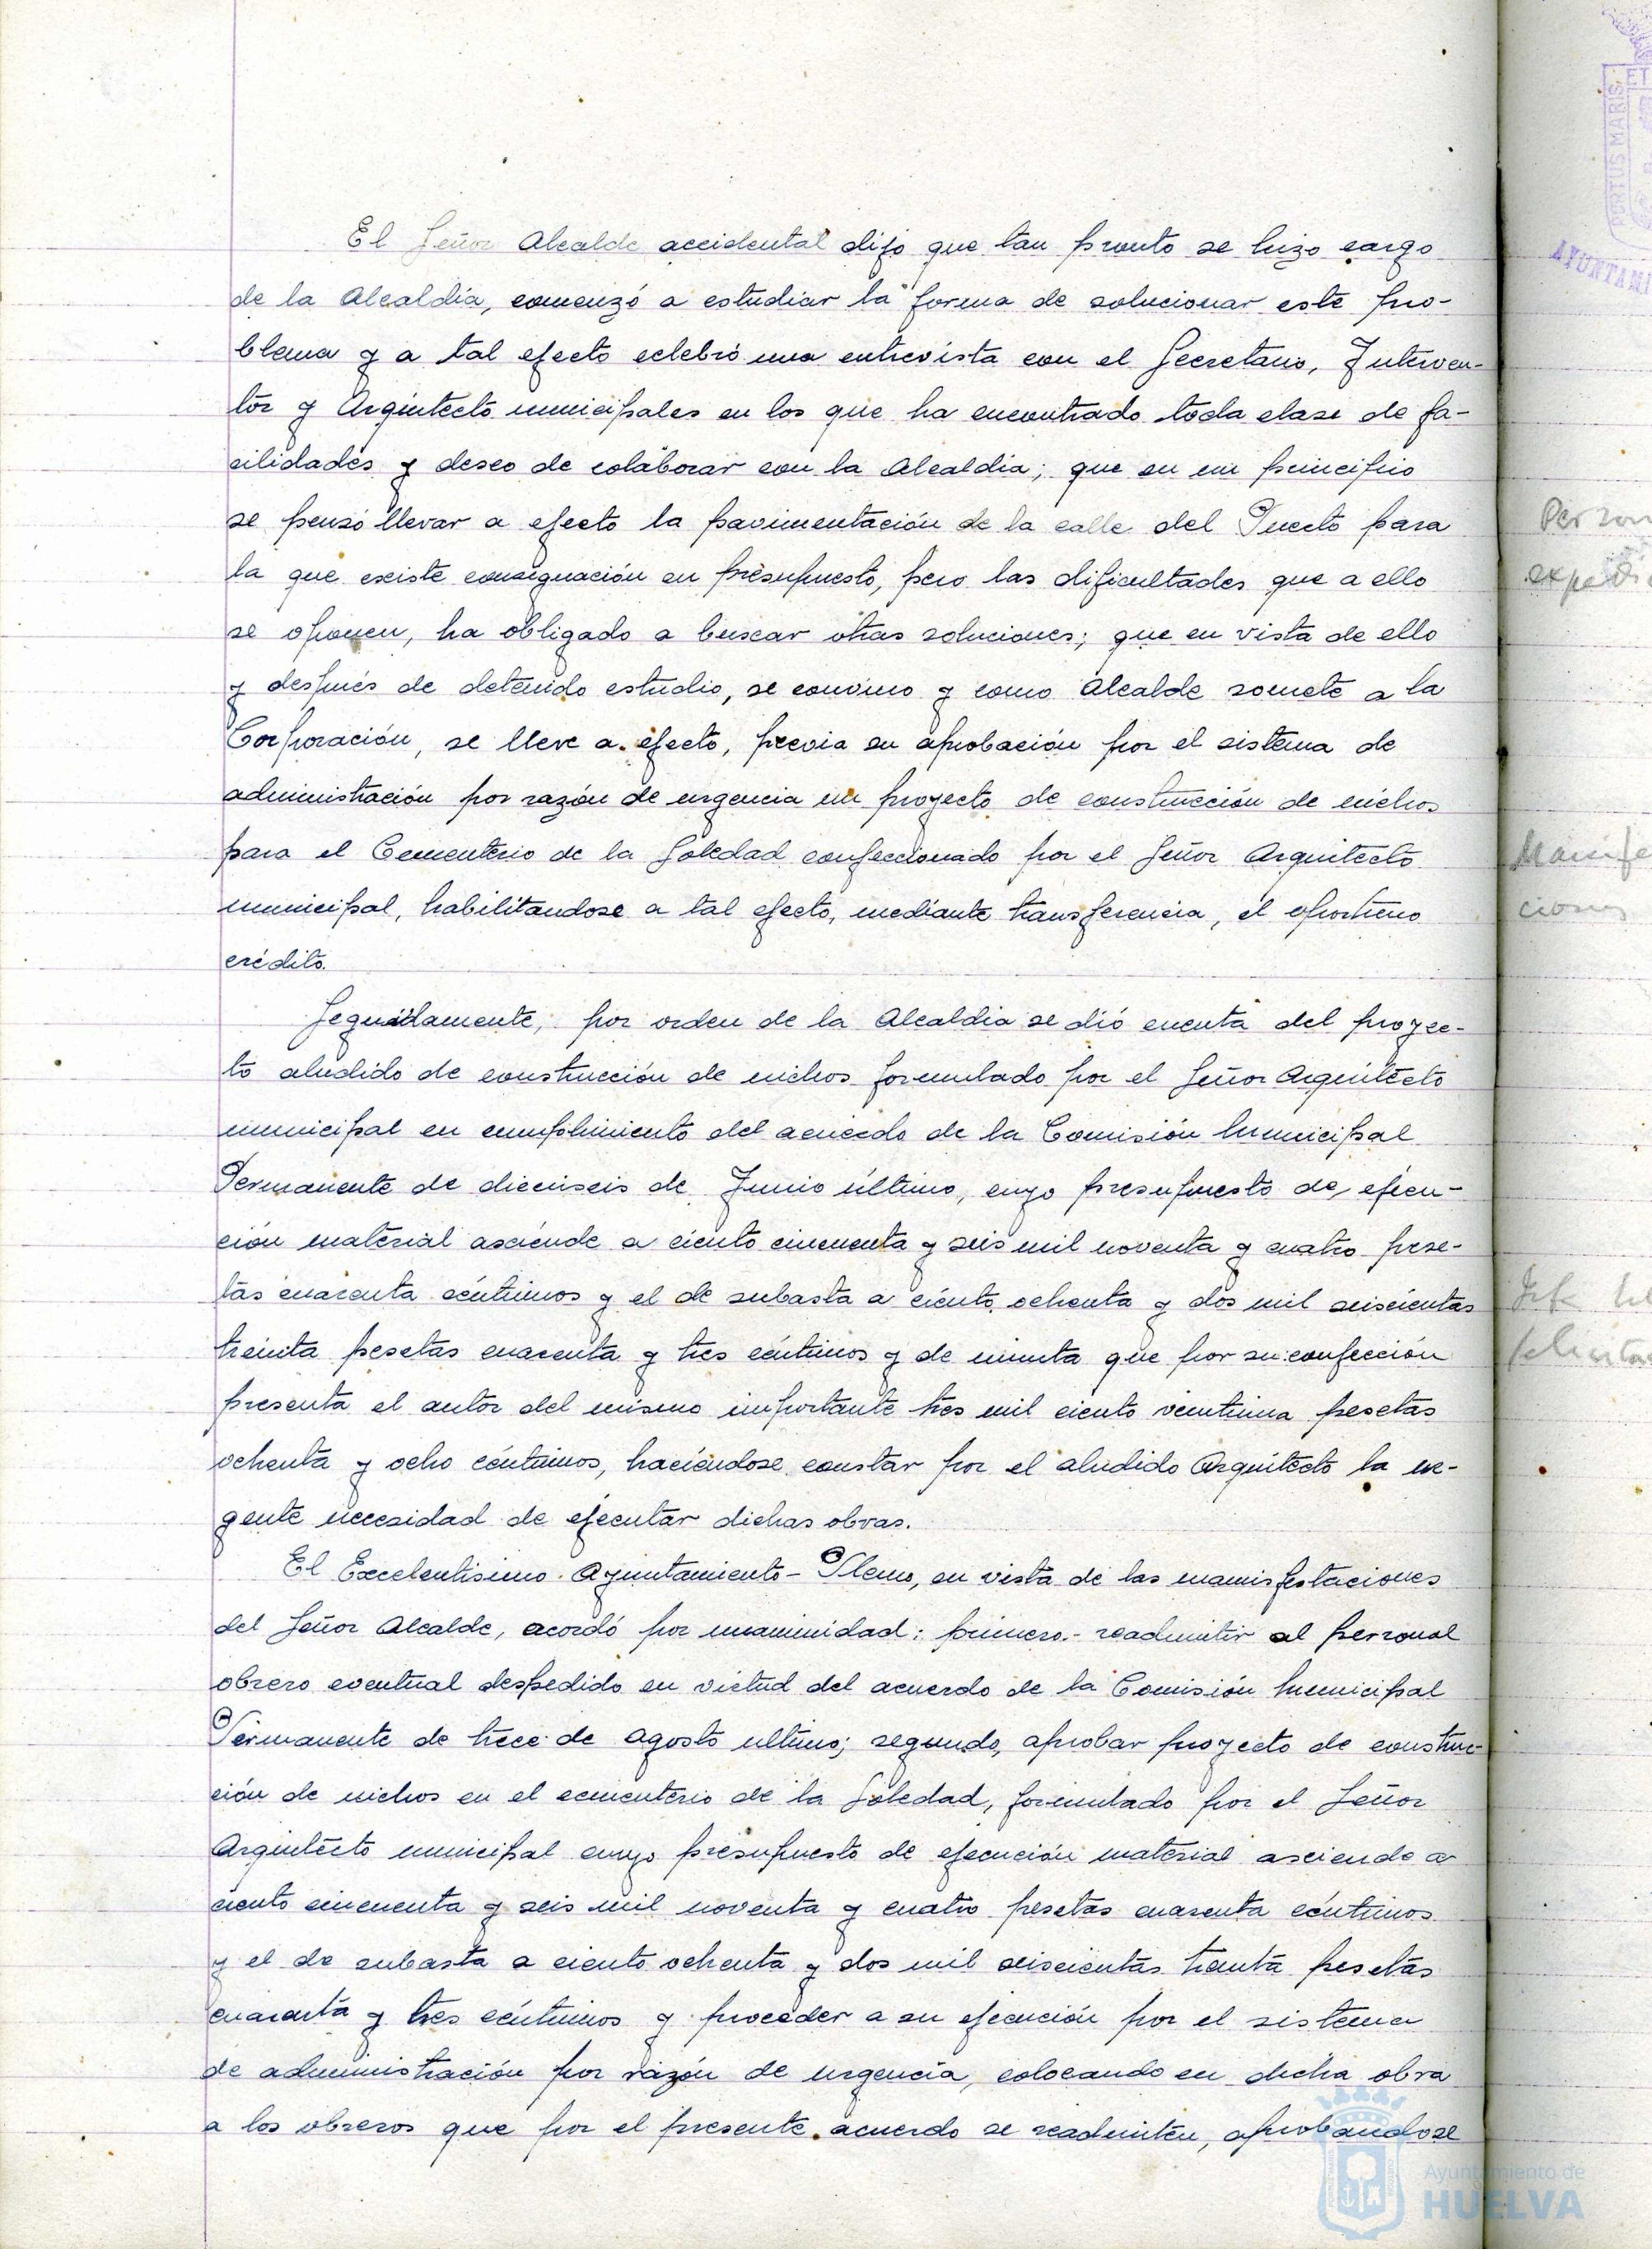 El Señor Alcalde accidental dijo que tan pronto se hizo cargo
de la Alcaldía, comenzó a estudiar la forma de solucionar este pro-
blema y a tal efecto celebró una entrevista con el Secretario, Interven-
tor y Arquitecto municipales en los que ha encontrado toda clase de fa-
cilidades y deseo de colaborar con la Alcaldia; que en un principio
se pensó llevar a efecto la pavimentación de la calle del Puerto para
la que existe consignación en presupuesto, pero las dificultades que a ello
se oponen, ha obligado a buscar otras soluciones; que en vista de ello
y después de detenido estudio, se convino y como Alcalde somete a la
Corporación, se lleve a efecto, previa su aprobación por el sistema de
administración por razón de urgencia un proyecto de construcción de nichos
para el Cementerio de la Soledad confeccionado por el Señor Arquitecto
municipal, habilitandose a tal efecto, mediante transferencia, el oportuno
crédito.
Seguidamente, por orden de la Alcaldia se dió cuenta del proyec-
to aludido de construcción de nichos formulado por el Señor Arquitecto
municipal en cumplimiento del acuerdo de la Comisión Municipal
Permanente de dieciseis de Junio último, cuyo presupuesto de ejecu-
ción material asciende a ciento cincuenta y seis mil noventa y cuatro pese-
tas cuarenta céntimos y el de subasta a ciento ochenta y dos mil seiscientas
treinta pesetas cuarenta y tres céntimos y de minuta que por su confección
presenta el autor del mismo importante tres mil ciento veintiuna pesetas
ochenta y ocho céntimos, haciéndose constar por el aludido Arquitecto la ur-
gente necesidad de ejecutar dichas obras.
El Excelentisimo Ayuntamiento-Pleno, en vista de las manisfestaciones
del Señor Alcalde, acordó por unanimidad: primero.- readmitir al personal
obrero eventual despedido en virtud del acuerdo de la Comisión Municipal
Permanente de trece de Agosto ultimo; segundo, aprobar proyecto de construc-
ción de nichos en el cementerio de la Soledad, formulado por el Señor
Arquitecto municipal cuyo presupuesto de ejecución material asciende a
ciento cincuenta y seis mil noventa y cuatro pesetas cuarenta céntimos
y el de subasta a ciento ochenta y dos mil seiscientas treinta pesetas
cuarenta y tres céntimos y proceder a su ejecución por el sistema
de administración por razón de urgencia, colocando en dicha obra
a los obreros que por el presente acuerdo se readmiten, aprobandose
Ayuntamiento de
HUELVA
PORTUS MARIS ET
AYUNTAMI
Person
expedie
Manife
ciones